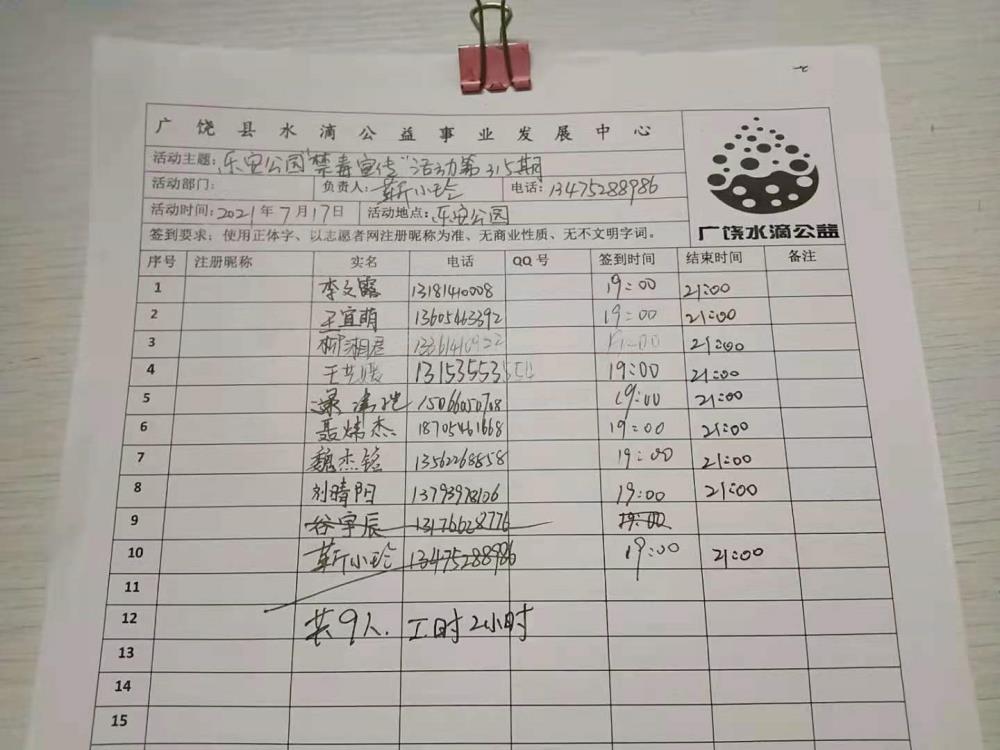 广饶县水滴公益事业发展中心
活动主题：乐安公园“禁毒宣传”活动第315期
活动部门： 负责人：靳小玲 电话：13475288986
活动时间：2021年7月17日 活动地点：乐安公园
签到要求：使用正体字、以志愿者网注册昵称为准、无商业性质、无不文明字词。
广饶水滴公益
序号 注册昵称 实名 电话 QQ号 签到时间 结束时间 备注
1 李文露 13181410008 19:00 21:00
2 王宜萌 13605463392 19:00 21:00
3 柳湘君 21:00
4 19:00 21:00
5 15066050708 19:00 21:00
6 聂炜杰 18705461668 19:00 21:00
7 魏杰铭 13562268858 19:00 21:00
8 刘晴阳 13793978106 19:00 21:00
9 谷宇辰 13176628776 19:00
10 靳小玲 13475288986 19:00 21:00
11
12 共9人. 工时2小时
13
14
15